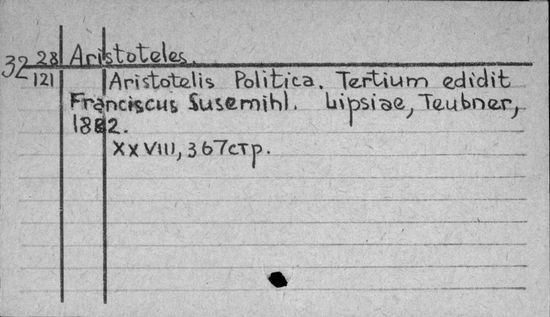 32 28 Aristoteles.
121 Aristotelis Politica. Tertium edidit
Franciscus Susemihl. Lipsiae, Teubner,
1882.
XXVIII, 367стр.